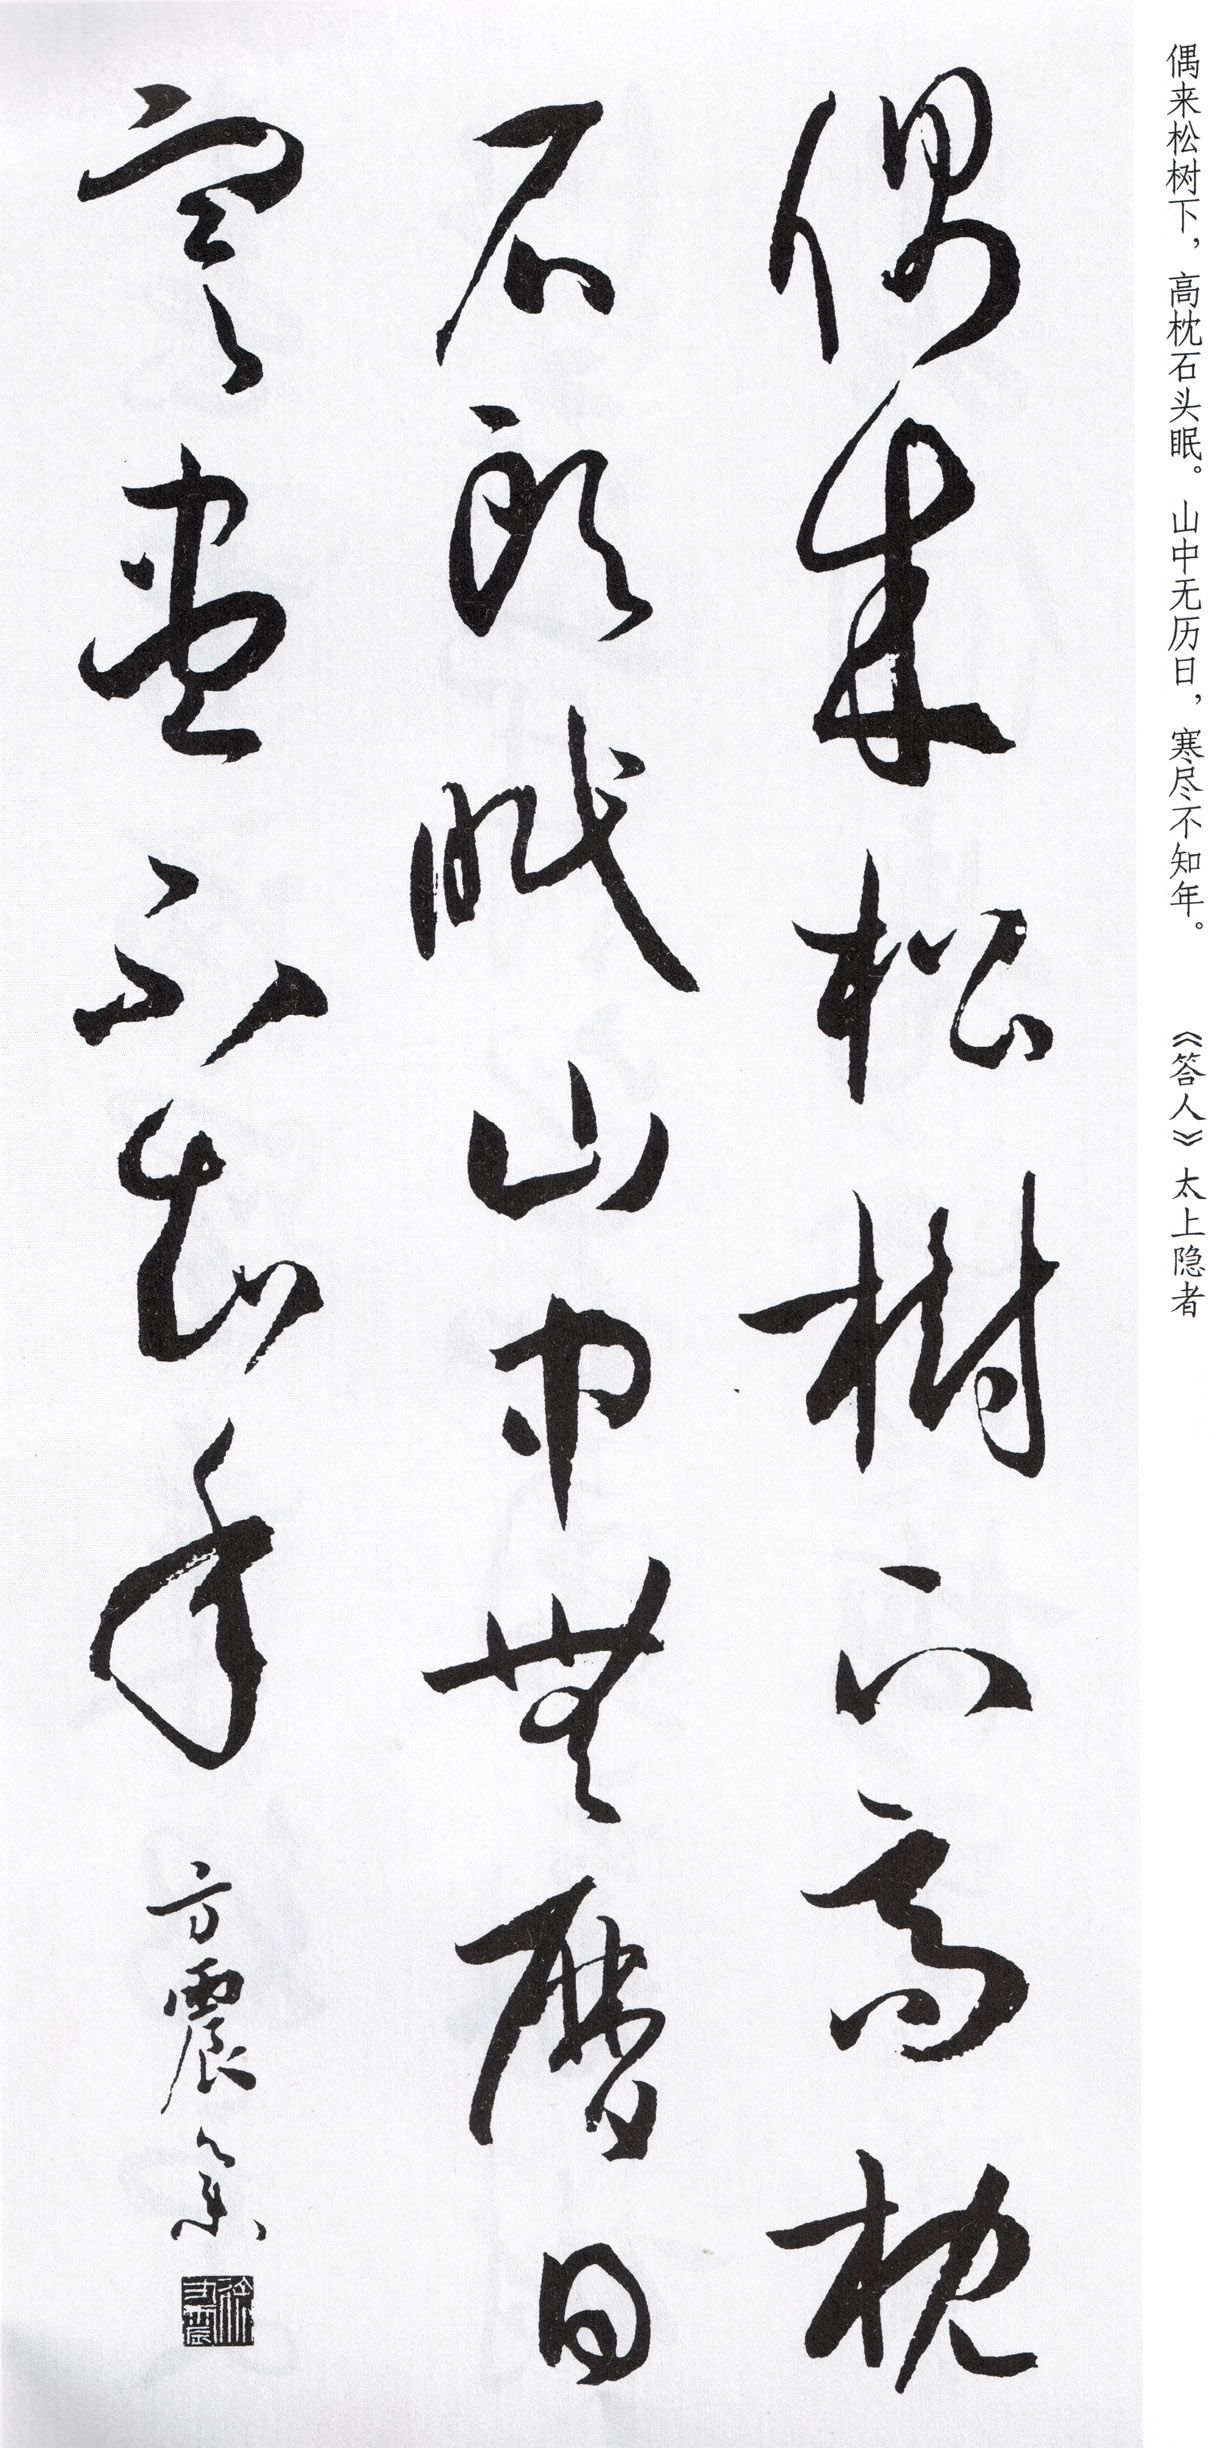 偶来松树下，高枕石头眠。山中无历日，寒尽不知年。 《答人》太上隐者
偶來松樹下高枕
石頭眠山中無曆日
寒盡不知年
方震